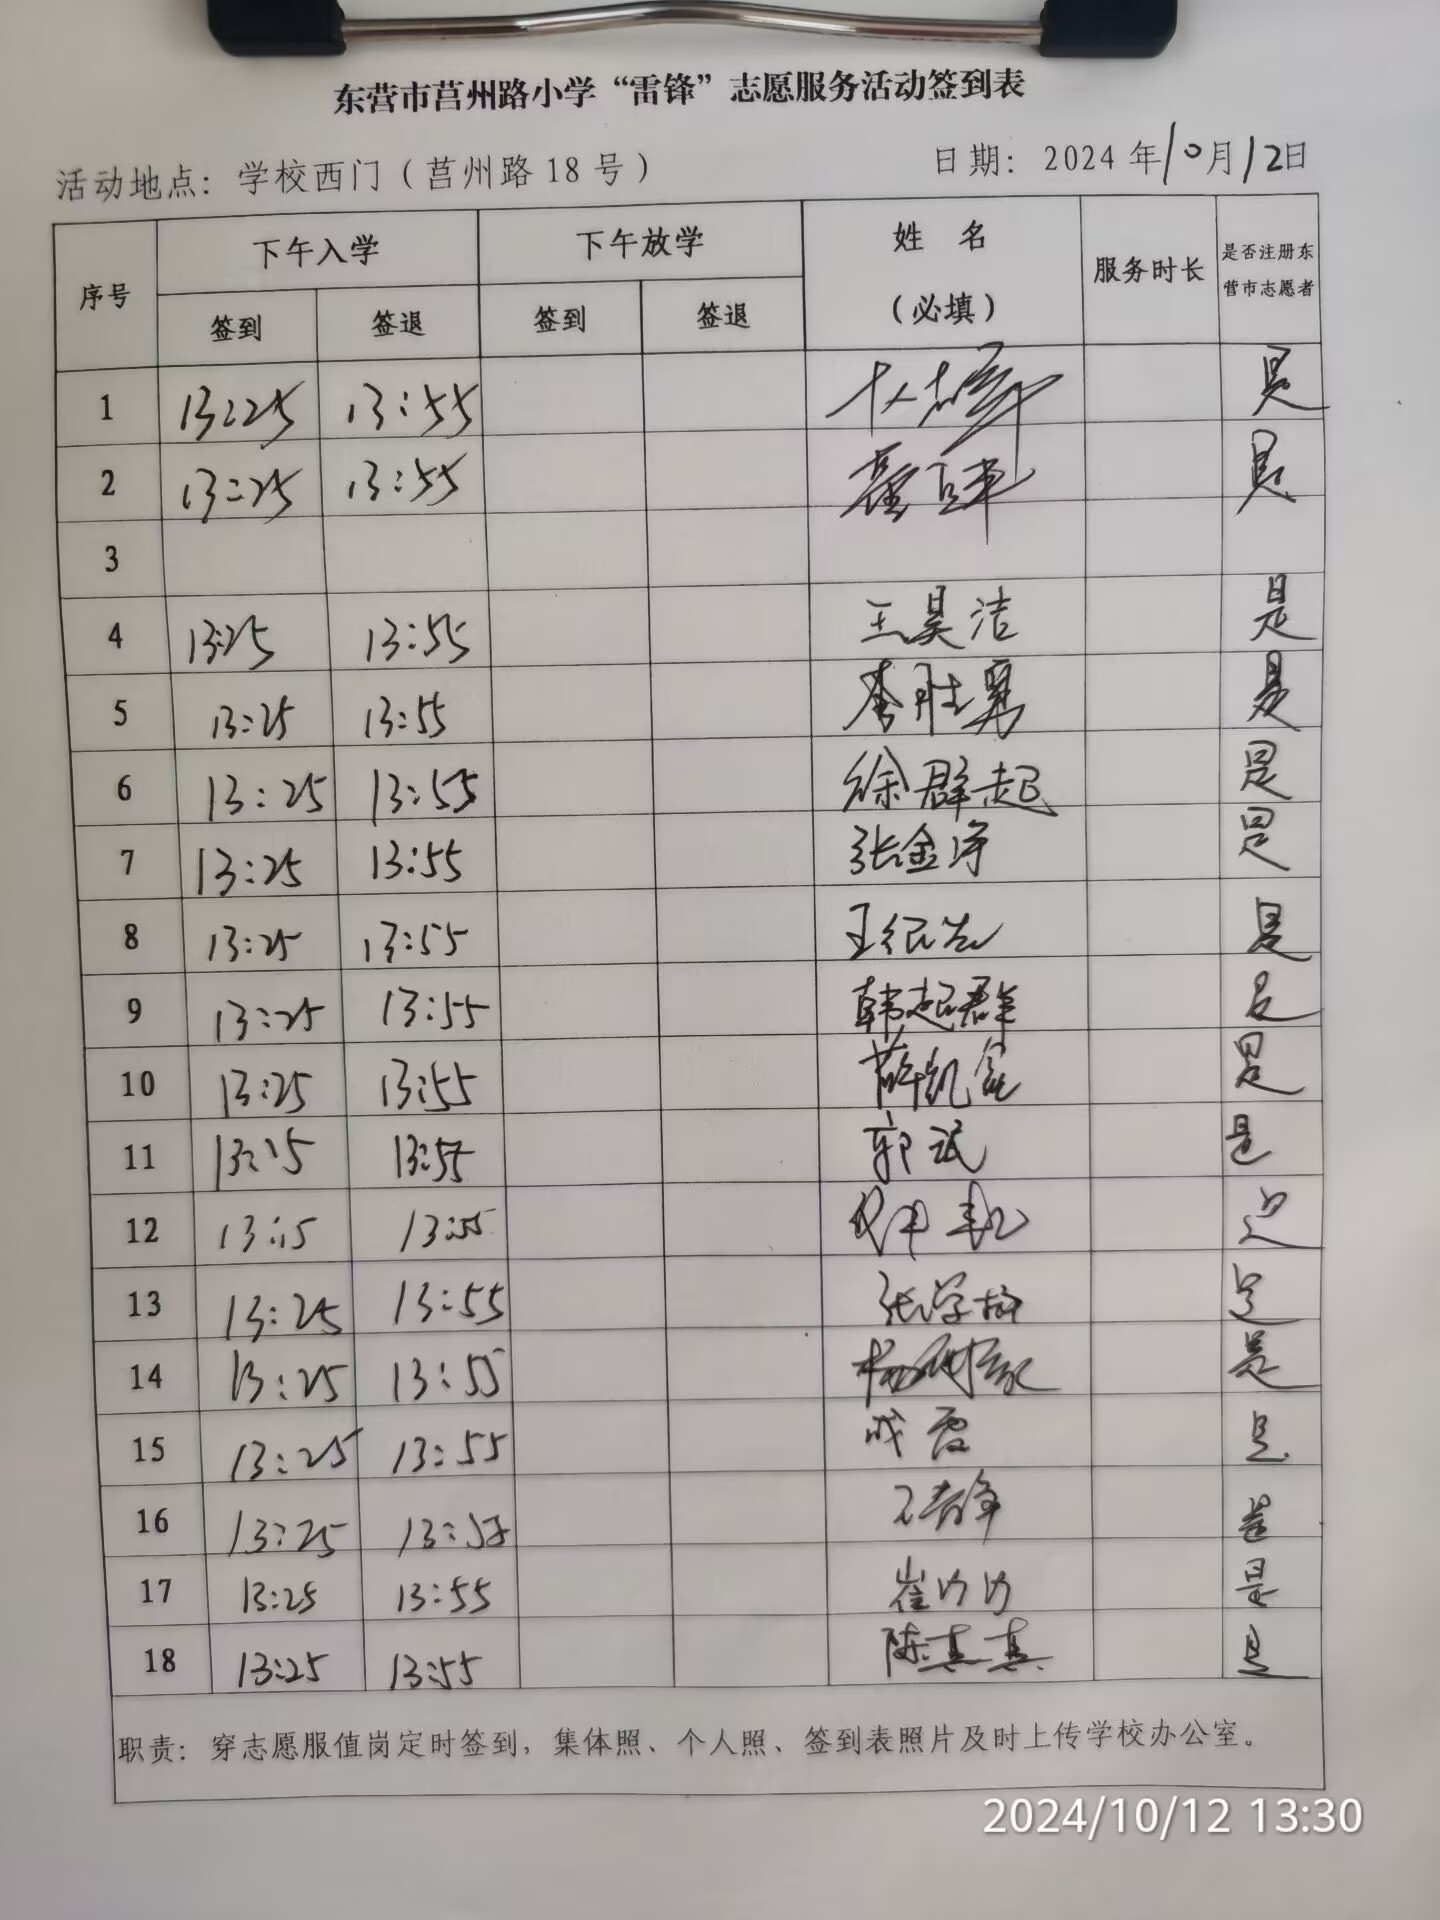 东营市莒州路小学“雷锋”志愿服务活动签到表
活动地点：学校西门（莒州路18号） 日期：2024年10月12日
序号 下午入学 下午放学 姓 名（必填） 服务时长 是否注册东营市志愿者
签到 签退 签到 签退
1 13:25 13:55 是
2 13:25 13:55 是
3
4 13:25 13:55 王昊洁 是
5 13:25 13:55 李胜勇 是
6 13:25 13:55 徐群起 是
7 13:25 13:55 张金 是
8 13:25 13:55 王 是
9 13:25 13:55 韩起群 是
10 13:25 13:55 薛凯 是
11 13:15 13:55 郭斌 是
12 13:15 13:55 是
13 13:25 13:55 张学 是
14 13:25 13:55 杨 是
15 13:25 13:55 霞 是
16 13:25 13:55 是
17 13:25 13:55 崔 是
18 13:25 13:55 陈真真 是
职责：穿志愿服值岗定时签到，集体照、个人照、签到表照片及时上传学校办公室。
2024/10/12 13:30